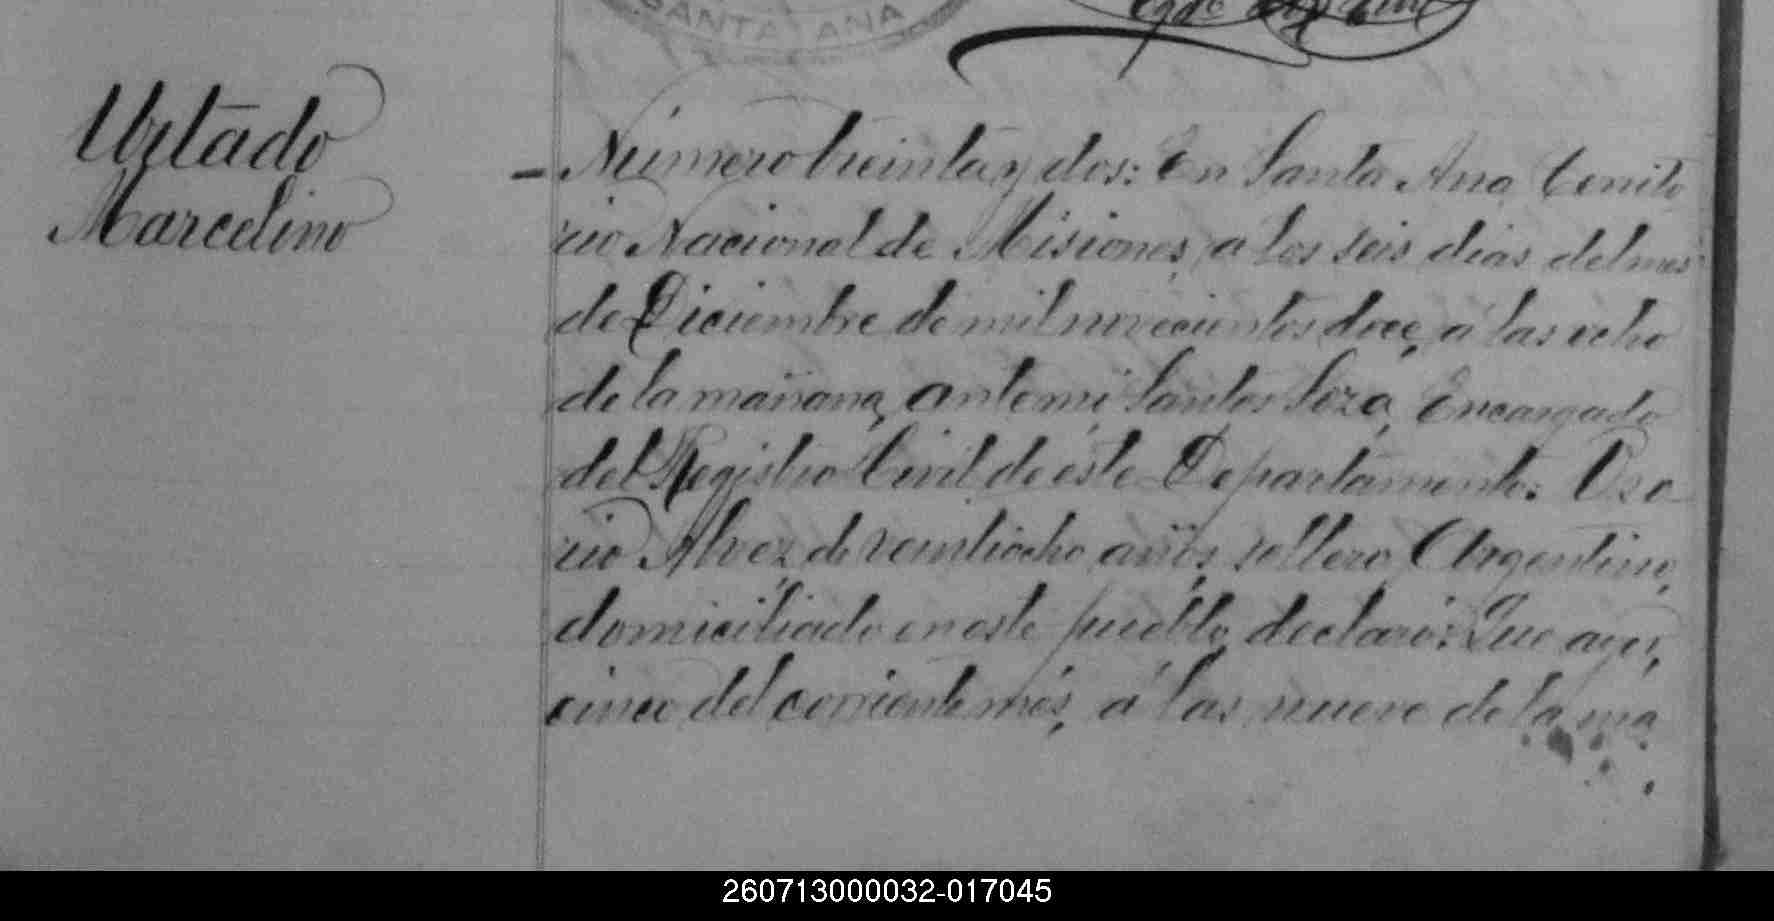 SANTA ANA
Urtado
Marcelino
- Número treinta y dos: En Santa Ana Territo
rio Nacional de Misiones, a los seis dias del mes
de Diciembre de mil novecientos doce, á las ocho
de la mañana, ante mi, Santos Soza, Encargado
del Registro Civil de éste Departamento: Oso
rio Alvez, de veintiocho años, soltero, Argentino,
domiciliado en este pueblo, declaró: Que ayer,
cinco del corriente més, á las nueve de la ma
260713000032-017045